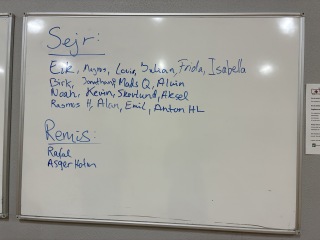 Sejr:
Eik, Magnus, Louie, Julian, Frida, Isabella
Birk, Jonathan, Mads Q, Alvin
Noah, Kevin, Skovlund, Aksel
Rasmus H, Alan, Emil, Anton HL
Remis:
Rafal
Asger Holm